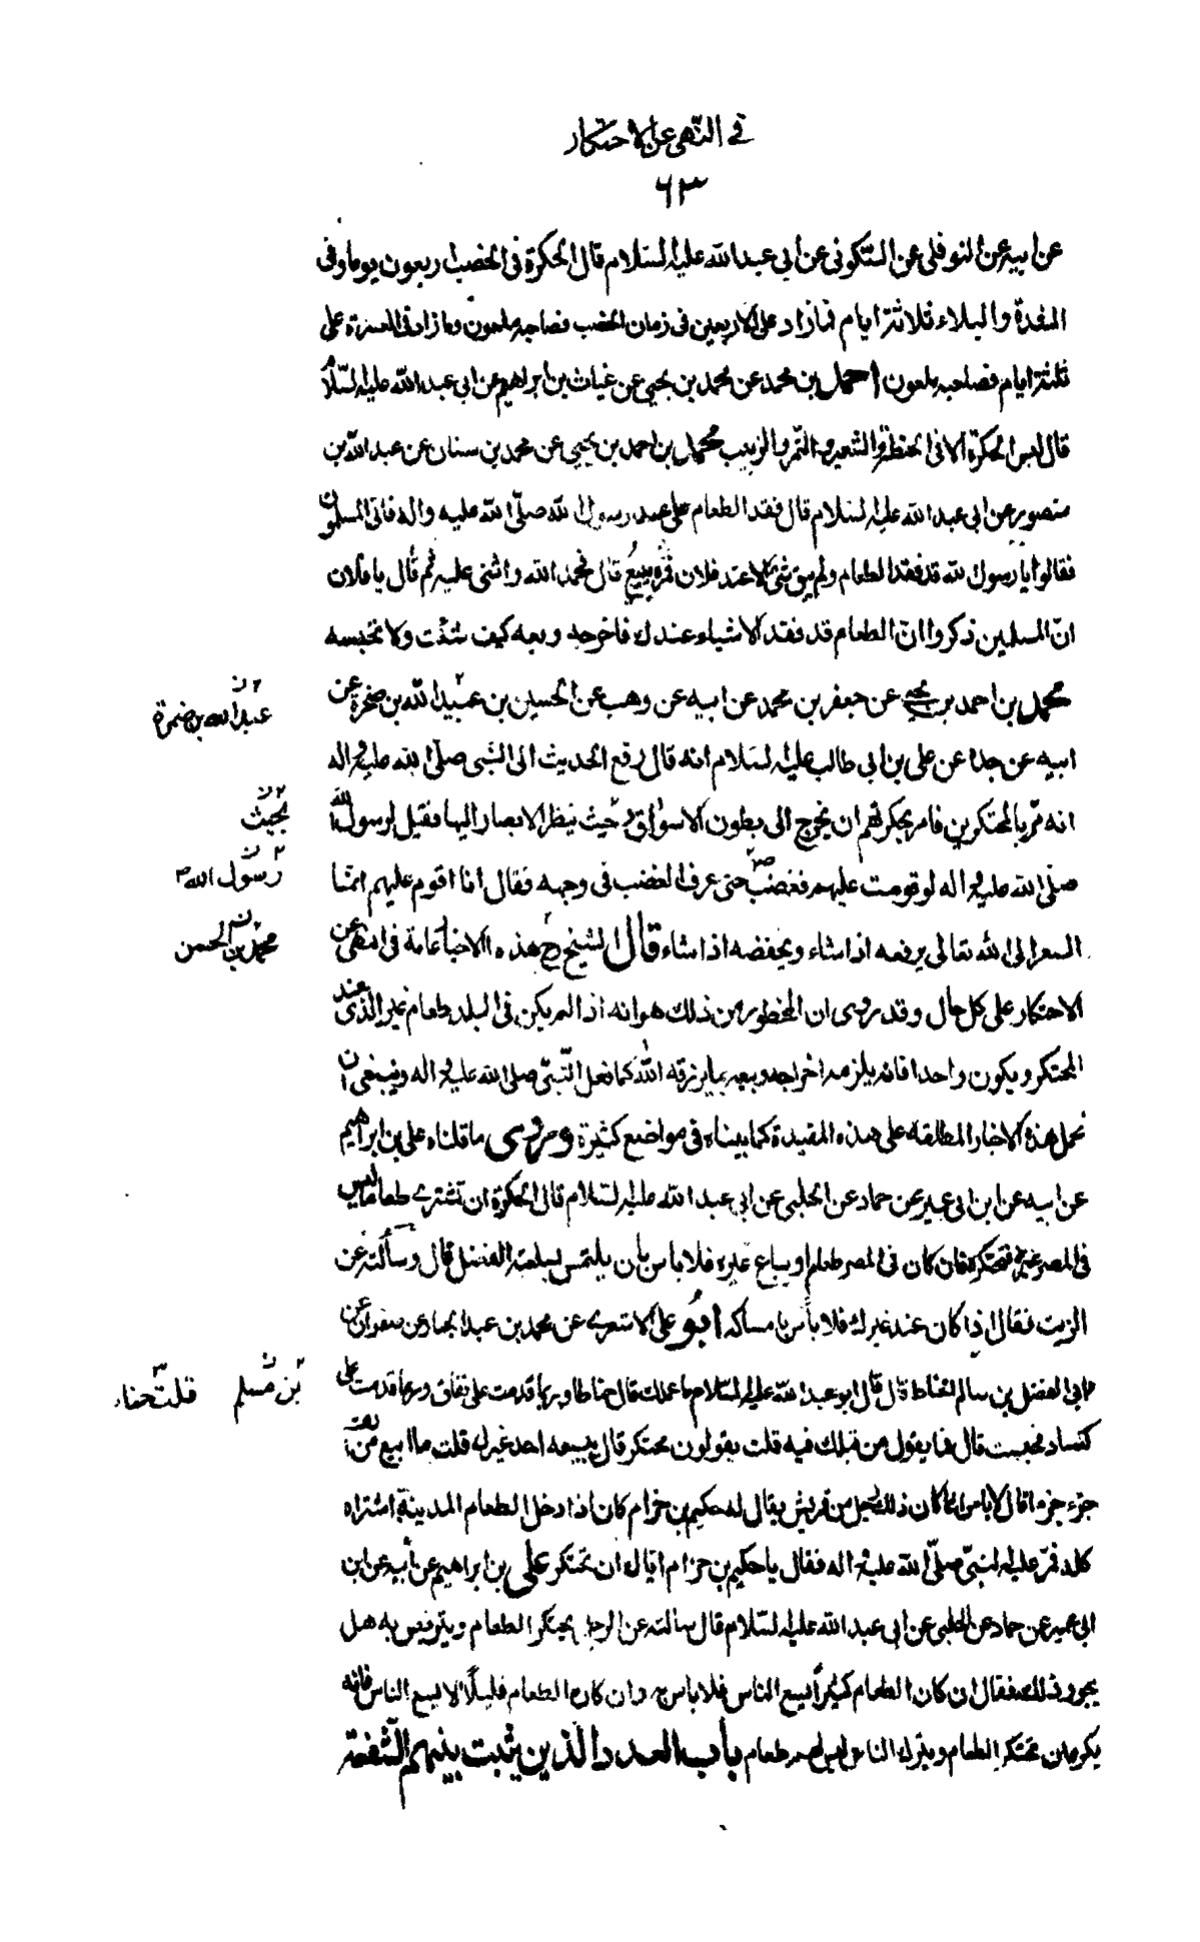 في النهى عن الاحتكار
٦٣
عن ابيه عن النوفلى عن السّكونى عن أبي عبد الله عليه السّلام قال الحكرة فى الخصب اربعون يوما وفى
الشدة والبلاء ثلاثة ايام فمازاد على الاربعين فى زمان الخصب فصاحبه ملعون وما زاد فى العسرة على
ثلثة ايام فصاحبه ملعون احمد بن محمد عن محمد بن يحيى عن غياث بن ابراهيم عن ابى عبد الله عليه السّلام
قال ليس الحكرة الا فى الحنطة والشعير و التّمر والزبيب محمد بن احمد بن يحيى عن محمد بن سنان عن عبد الله بن
منصور عن ابى عبد الله عليه السلام قال فقد الطعام على عهد رسول الله صلّى الله عليه واله فاتى المسلمون
فقالوا يا رسول الله قد فقد الطعام ولم يبق شئ الا عند فلان فمره يبيع قال فحمد الله واثنى عليه ثم قال يا فلان
انّ المسلمين ذكروا انّ الطعام قد فقد الا شيئا عندك فاخرجه وبعه كيف شئت ولا تحبسه
محمد بن احمد بن يحيى عن جعفر بن محمد عن ابيه عن وهب عن الحسين بن عبيد الله بن ضمرة عن
عبد الله بن ضمرة
ابيه عن جده عن على بن ابي طالب عليه السّلام انه قال رفع الحديث الى النّبى صلّى الله عليه واله
انه مرّ بالمحتكرين فامر بحكرتهم ان يخرج الى بطون الاسواق وحيث ينظر الابصار اليها فقيل لرسول الله
بحيث
صلى الله عليه واله لو قومت عليهم فغضب حتى عرف الغضب فى وجهه فقال انا اقوم عليهم انما
رسول الله
السعر الى الله تعالى يرفعه اذا شاء ويخفضه اذا شاء قال الشيخ ره هذه الاخبار عامة فى النهى عن
محمد بن الحسن
الاحتكار على كل حال وقد روى ان المحظور من ذلك هو انه اذا لم يكن فى البلد طعام غير الذى عند
المحتكر ويكون واحدا فانه يلزمه اخراجه وبيعه بما يرزقه الله كما فعل النّبىّ صلى الله عليه واله وينبغى ان
نحمل هذه الاخبار المطلقه على هذه المقيدة كما بيناه فى مواضع كثيرة وروى ما قلناه على بن ابراهيم
عن ابيه عن ابن ابى عمير عن حماد عن الحلبى عن ابى عبد الله عليه السّلام قال الحكرة ان تشترى طعاما ليس
فى المصر غيره فتحتكره فان كان فى المصر طعام او يباع غيره فلا باس بان يلتمس لسلعته الفضل قال وسألته عن
الزيت فقال اذا كان عند غيرك فلا بأس بامساكه ابو على الاشعرى عن محمد بن عبد الجبار عن صفوان عن
ابى الفضل بن سالم الحناط قال قال ابو عبد الله عليه السّلام ما عملك قال حناط وربما قدمت على نفاق وربما قدمت على
بن مسلم قلت حناط
كساد فحبست قال فما يقول من قبلك فيه قلت يقولون محتكر قال يبيعه احد غيرك قلت ما ابيع من الف
جزء جزءا قال لا باس انما كان ذلك رجل من قريش يقال له حكيم بن حزام كان اذا دخل الطعام المدينة اشتراه
كله فمرّ عليه النبىّ صلّى الله عليه واله فقال يا حكيم بن حزام اياك ان تحتكر على بن ابراهيم عن أبيه عن ابن
ابى عمير عن حماد عن الحلبى عن ابى عبد الله عليه السّلام قال سألته عن الرجل يحتكر الطعام ويتربص به هل
يجوز ذلك فقال ان كان الطعام كثيرا يسع الناس فلا باس به وان كان الطعام قليلا لا يسع الناس فانه
يكره ان يحتكر الطعام ويترك الناس ليس لهم طعام باب العدد الذين يثبت بينهم الشفعة